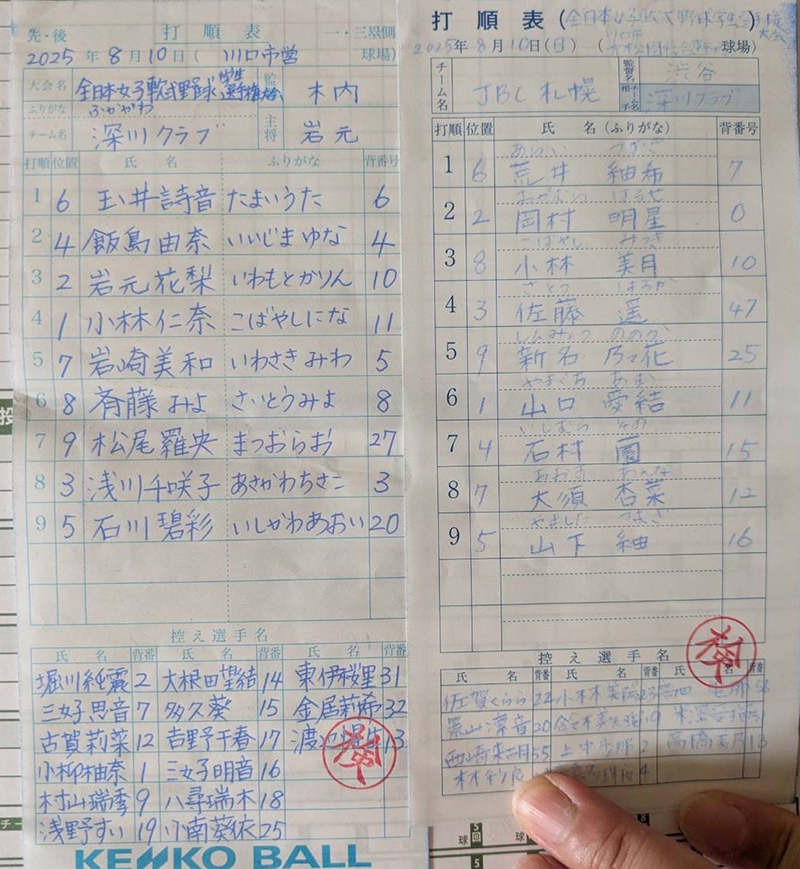 先・後 打順表 一・三塁側
2025年8月10日( 川口市営 球場)
大会名 全日本女子軟式野球学生選手権大会 監督 木内
ふりがな ふかがわ
チーム名 深川クラブ 主将 岩元
打順 位置 氏名 ふりがな 背番号
1 6 玉井詩音 たまいうた 6
2 4 飯島由奈 いいじまゆな 4
3 2 岩元花梨 いわもとかりん 10
4 1 小林仁奈 こばやしにな 11
5 7 岩崎美和 いわさきみわ 5
6 8 斉藤みよ さいとうみよ 8
7 9 松尾羅央 まつおらお 27
8 3 浅川千咲子 あさかわちさこ 3
9 5 石川碧彩 いしかわあおい 20
控え選手名
氏名 背番 氏名 背番 氏名 背番
堀川 2 大根田望結 14 東伊桜里 31
三好思音 7 多久葵 15 金居莉希 32
古賀莉菜 12 吉野千春 17 渡辺 13
小柳柚奈 1 三好明音 16
村山瑞季 9 八尋瑞木 18
浅野すい 19 小南葵依 25
KENKO BALL
打順表(全日本女子軟式野球学生選手権大会)
2025年8月10日(日)( 川口市 球場)
チーム名 JBC札幌 監督名 渋谷
相手チーム名 深川クラブ
打順 位置 氏名(ふりがな) 背番号
あらい つむぎ
1 6 荒井 紬希 7
おかむら はるせ
2 2 岡村 明星 0
こばやし みづき
3 8 小林 美月 10
さとう はるか
4 3 佐藤 遥 47
しんみょう ののか
5 9 新名 乃々花 25
やまぐち あゆ
6 1 山口 愛結 11
いしむら その
7 4 石村 園 15
おおす あんな
8 7 大須 杏菜 12
やました つむぎ
9 5 山下 紬 16
控え選手名
氏名 背番 氏名 背番 氏名 背番
佐賀くらら 22
20
55
4